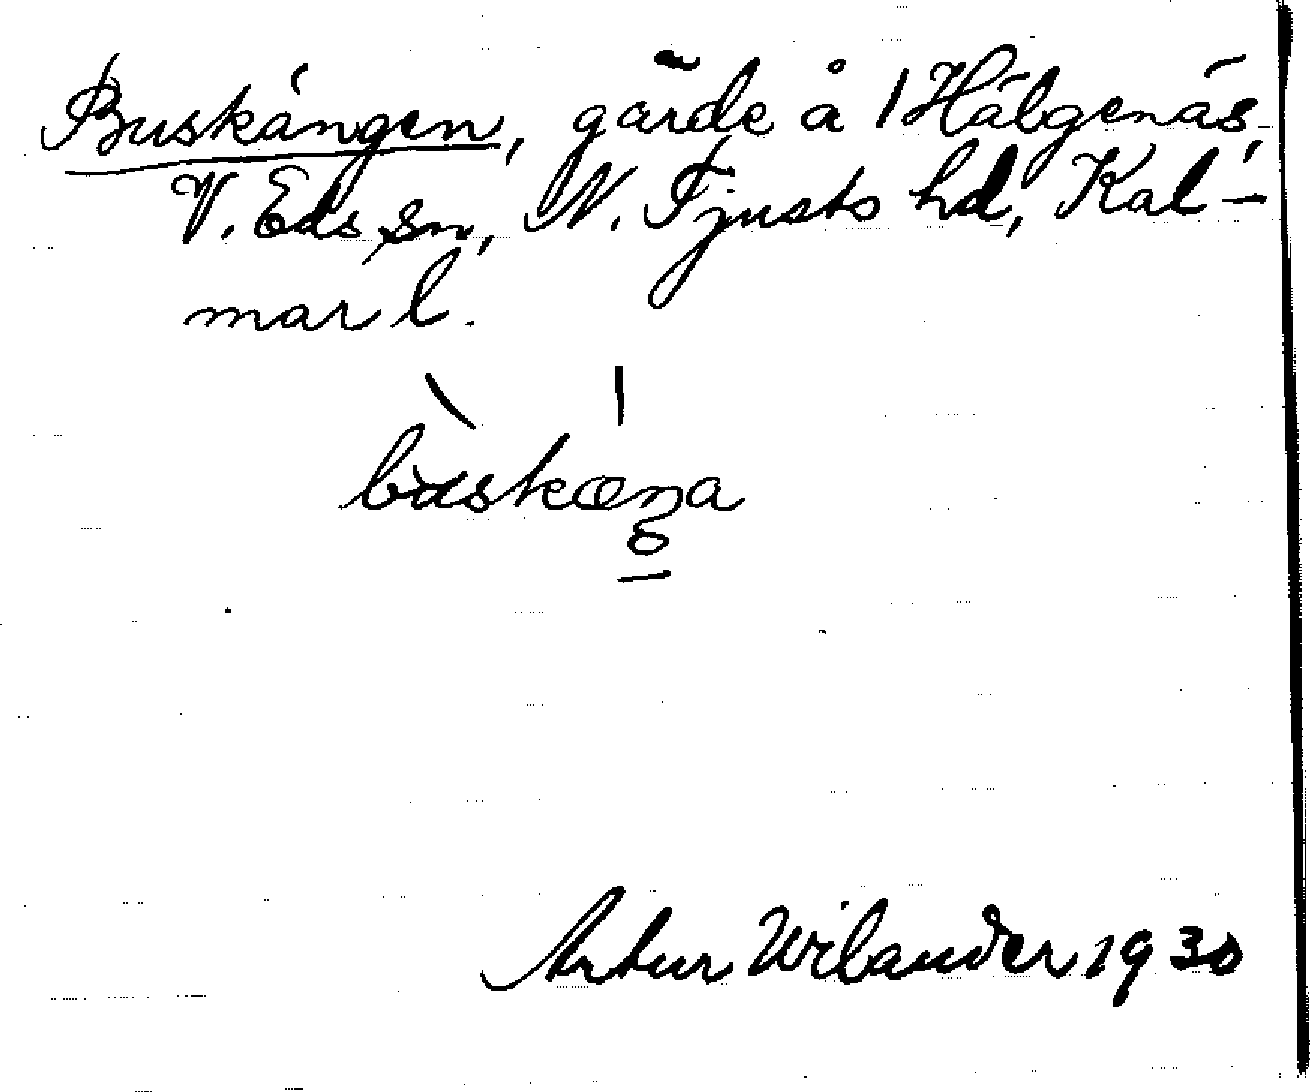 Buskängen, gärde å 1 Hälgenäs,
V. Eds sn, N. Tjusts hd, Kal-
mar l.
Artur Wilander 1930